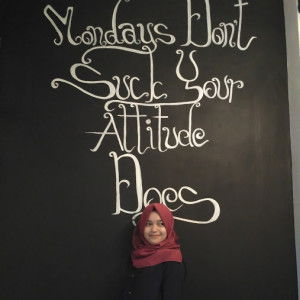 Mondays Don't
Suck Your
Attitude
Does